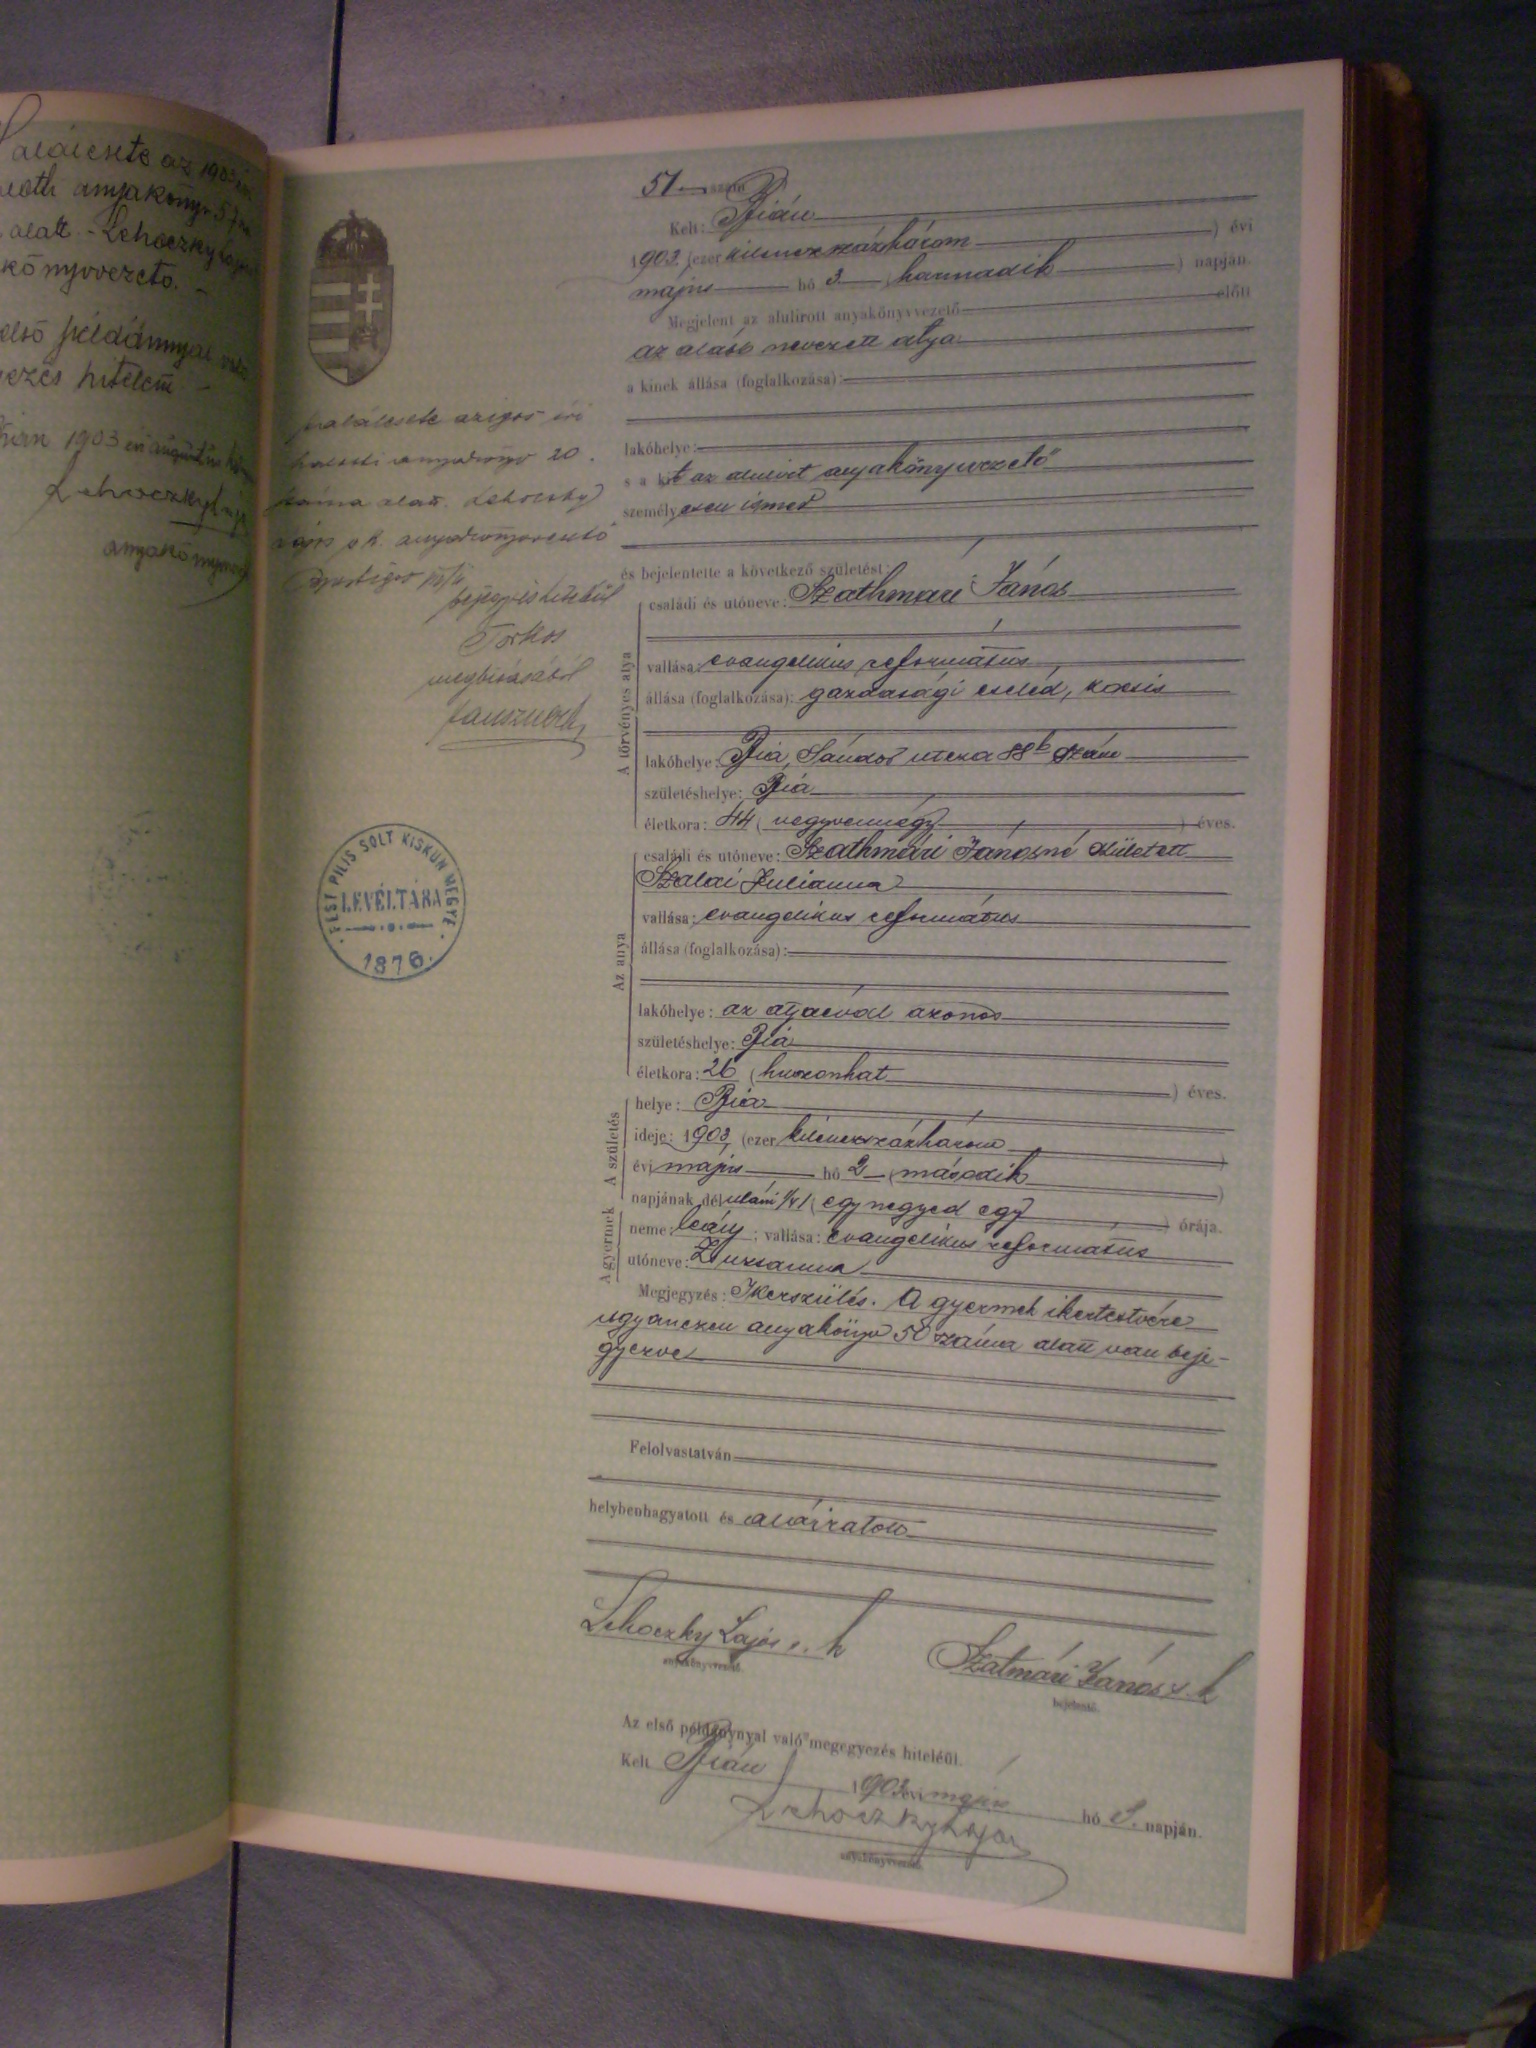 az 1903
anyakönyv 57
alatt - Lehoczky Lajos
könyvvezető. -
első példánnyal való
hitelem -
1903 évi augusztus
Lehoczky Lajos
halálesete
halotti anyakönyv 20.
száma alatt. Lehoczky
Lajos s. k. anyakönyvvezető
bejegyzés hiteléül
Torkos
megbízásából
PEST PILIS SOLT KISKUN MEGYE
LEVÉLTÁRA
1876.
51 szám
Kelt: Bián
1903. (ezer kilenczszázhárom ) évi
május hó 3 (harmadik ) napján.
Megjelent az alulírott anyakönyvvezető előtt
az alább nevezett atya
a kinek állása (foglalkozása):
lakóhelye:
s a kit az alulírt anyakönyvvezető
személyesen ismer
és bejelentette a következő születést:
A törvényes atya
családi és utóneve: Szathmári János
vallása: evangelikus református
állása (foglalkozása): gazdasági cseléd, kocsis
lakóhelye: Bia, Sándor utcza 88b szám
születéshelye: Bia
életkora: 44 (negyvennégy ) éves.
Az anya
családi és utóneve: Szathmári Jánosné született
Szalai Julianna
vallása: evangelikus református
állása (foglalkozása):
lakóhelye: az atyáéval azonos
születéshelye: Bia
életkora: 26 (huszonhat ) éves.
A születés
helye: Bia
ideje: 1903 (ezer kilenczszázhárom )
évi május hó 2 (második )
napjának délutáni 1/4 1 (egynegyed egy ) órája.
A gyermek
neme: leány; vallása: evangelikus református
utóneve: Zsuzsanna
Megjegyzés: Ikerszülés. A gyermek ikertestvére
ugyanezen anyakönyv 50 száma alatt van beje-
gyezve
Felolvastatván
helybenhagyatott és aláíratott
Lehoczky Lajos s. k
anyakönyvvezető
Szatmári János s. k
bejelentő.
Az első példánynyal való megegyezés hiteléül.
Kelt Bián 1903 évi május hó 3. napján.
Lehoczky Lajos
anyakönyvvezető